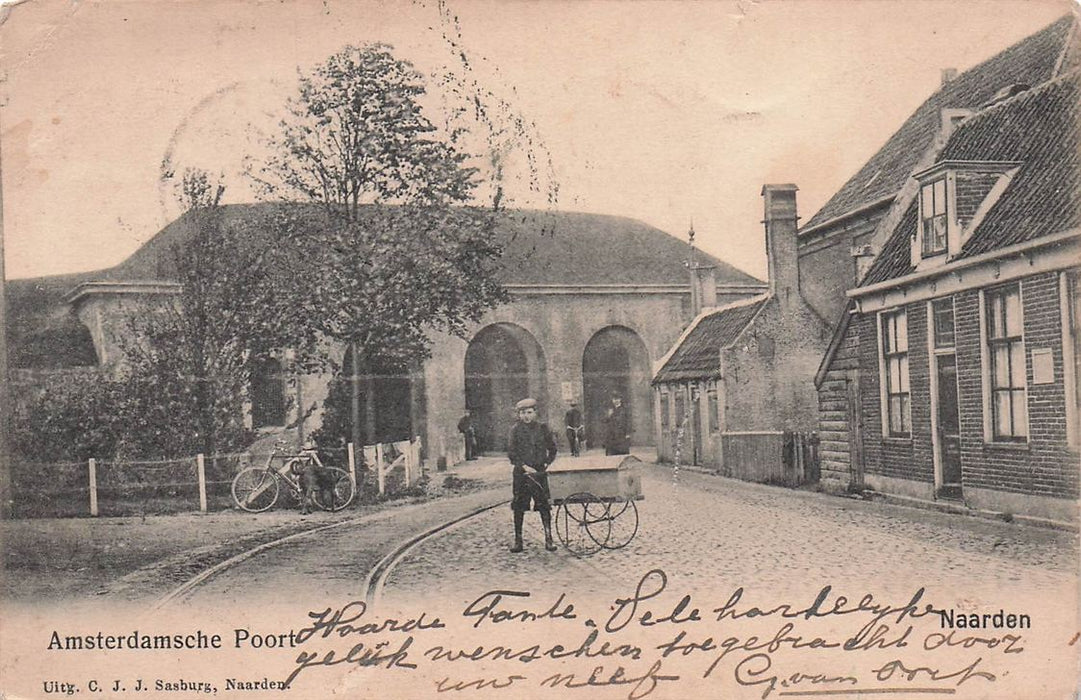 Amsterdamsche Poort
Naarden
Uitg. C. J. J. Sasburg, Naarden.
Waarde Tante. Vele hartelijke
geluk wenschen toegebracht door
uw neef G. van Oort